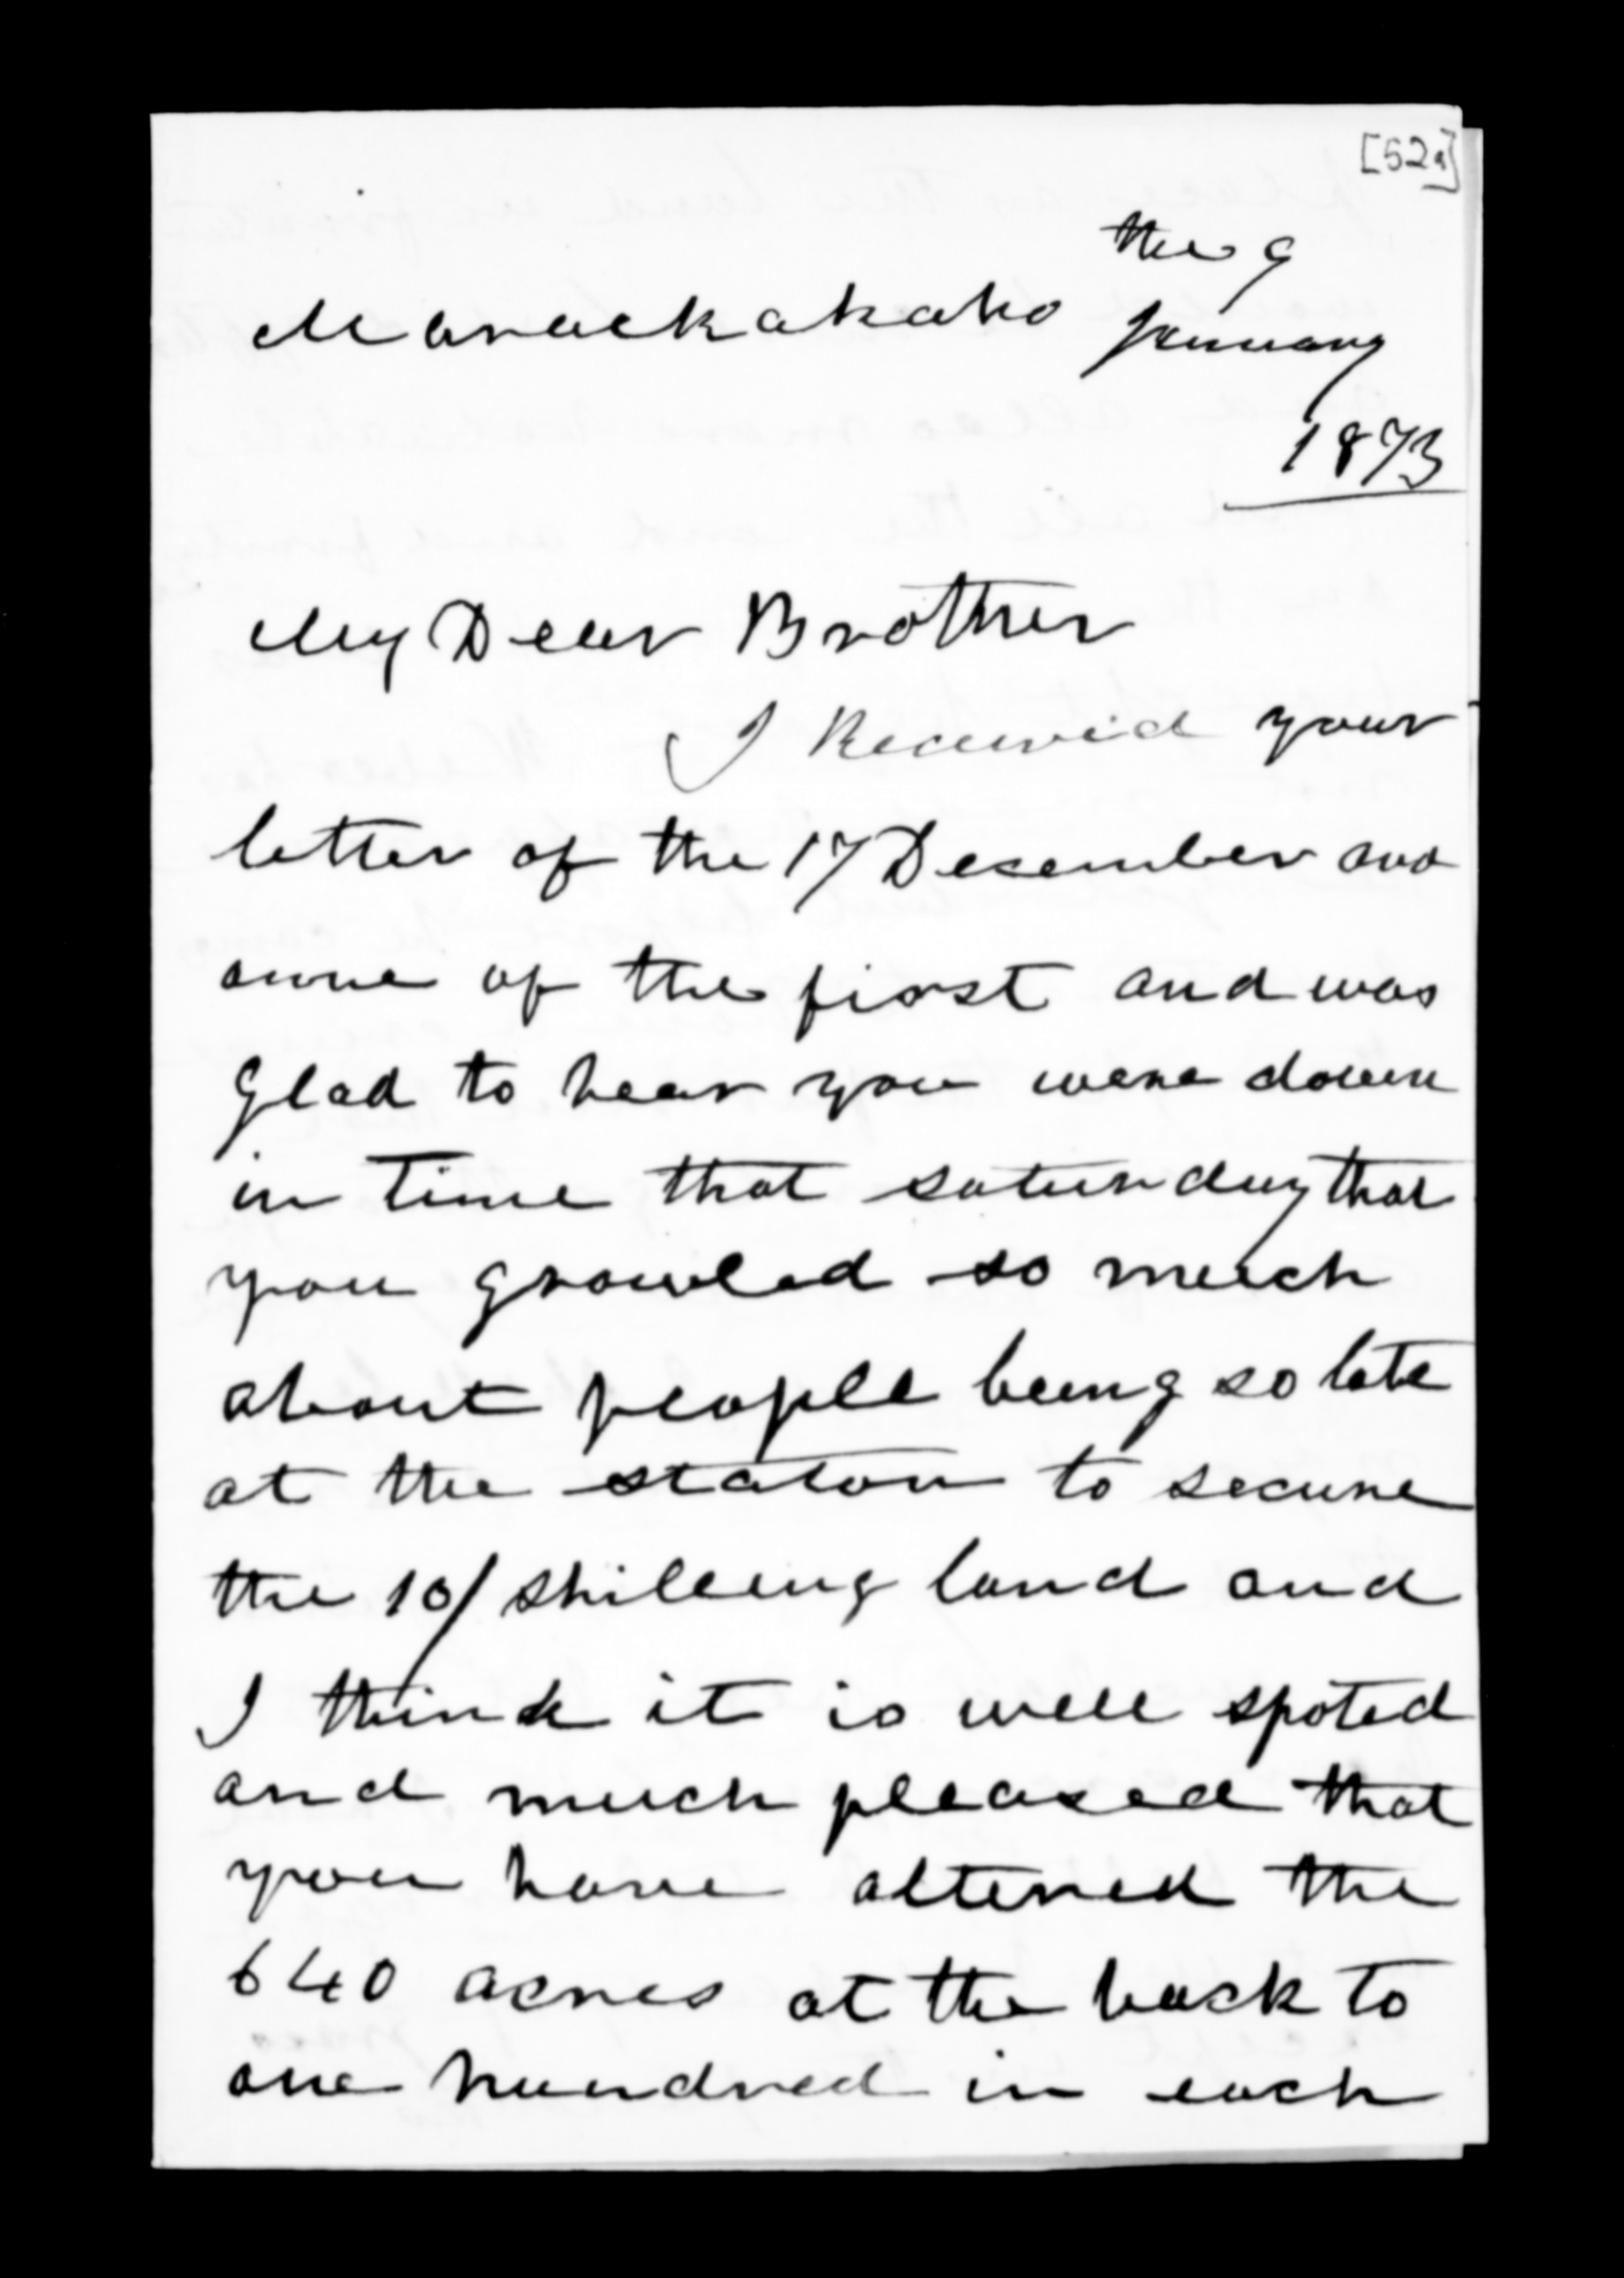 [52a]
the 9
Marackakaho January
1873
My Dear Brother
I Received your
letter of the 17 Desember and
owne of the first and was
glad to hear you were down
in time that saturday that
you growled so much
about people being so late
at the staton to secure
the 10/ shilling land and
I think it is well spoted
and much pleased that
you have altered the
640 acres at the back to
one hundred in each